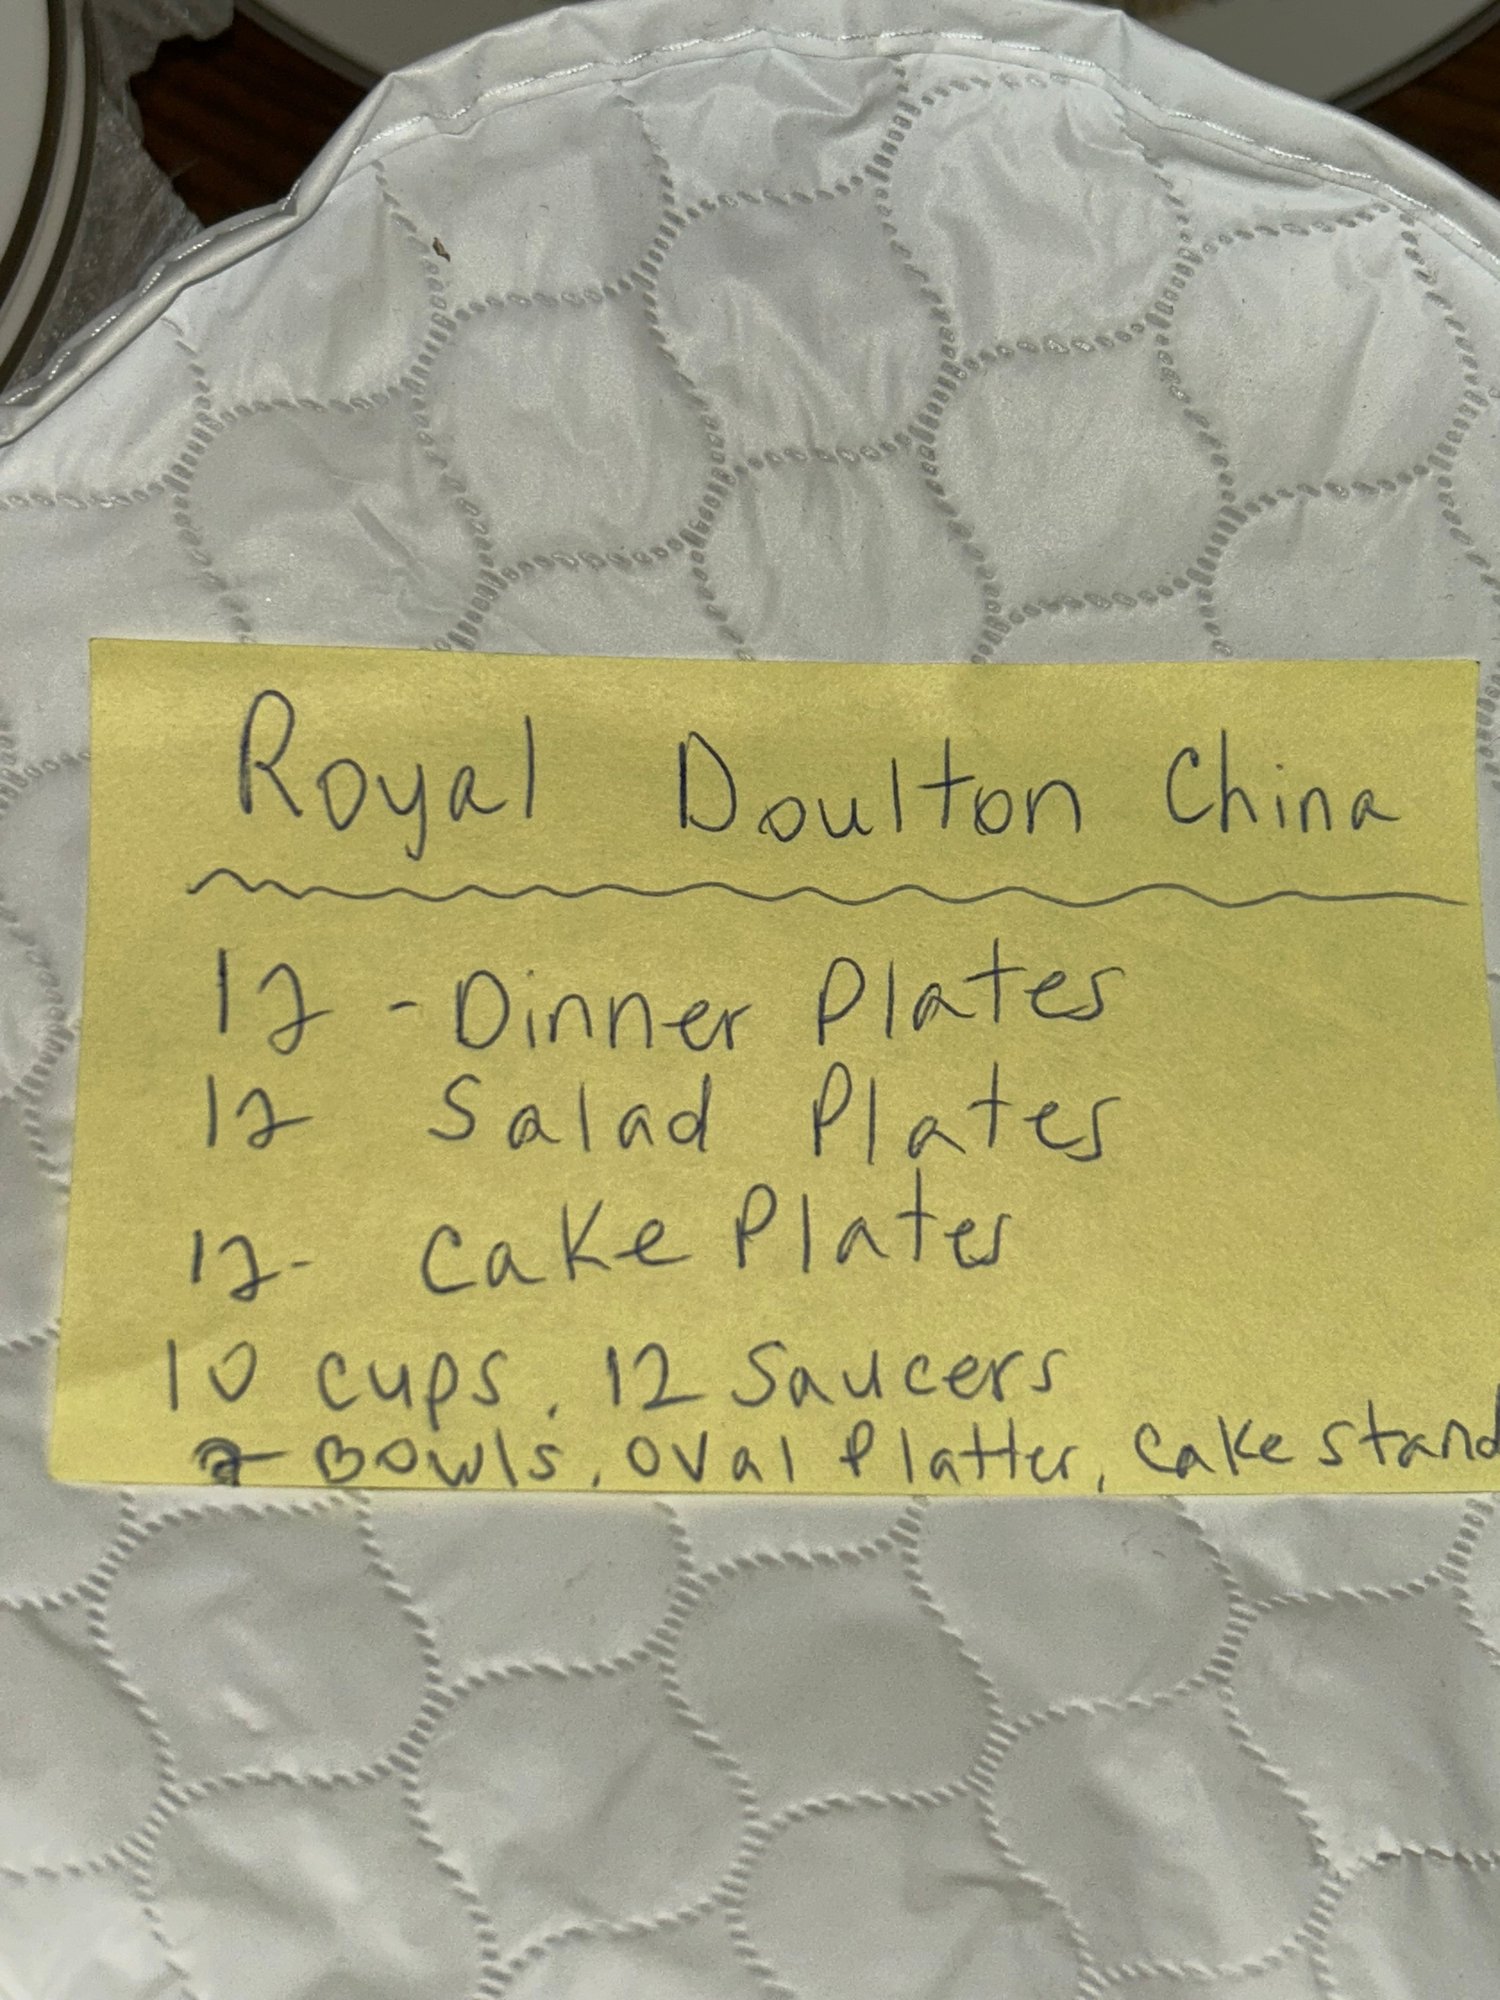 Royal Doulton China
12 - Dinner Plates
12 Salad Plates
12 - Cake Plates
10 cups, 12 Saucers
2 Bowls, Oval Platter, Cake stand